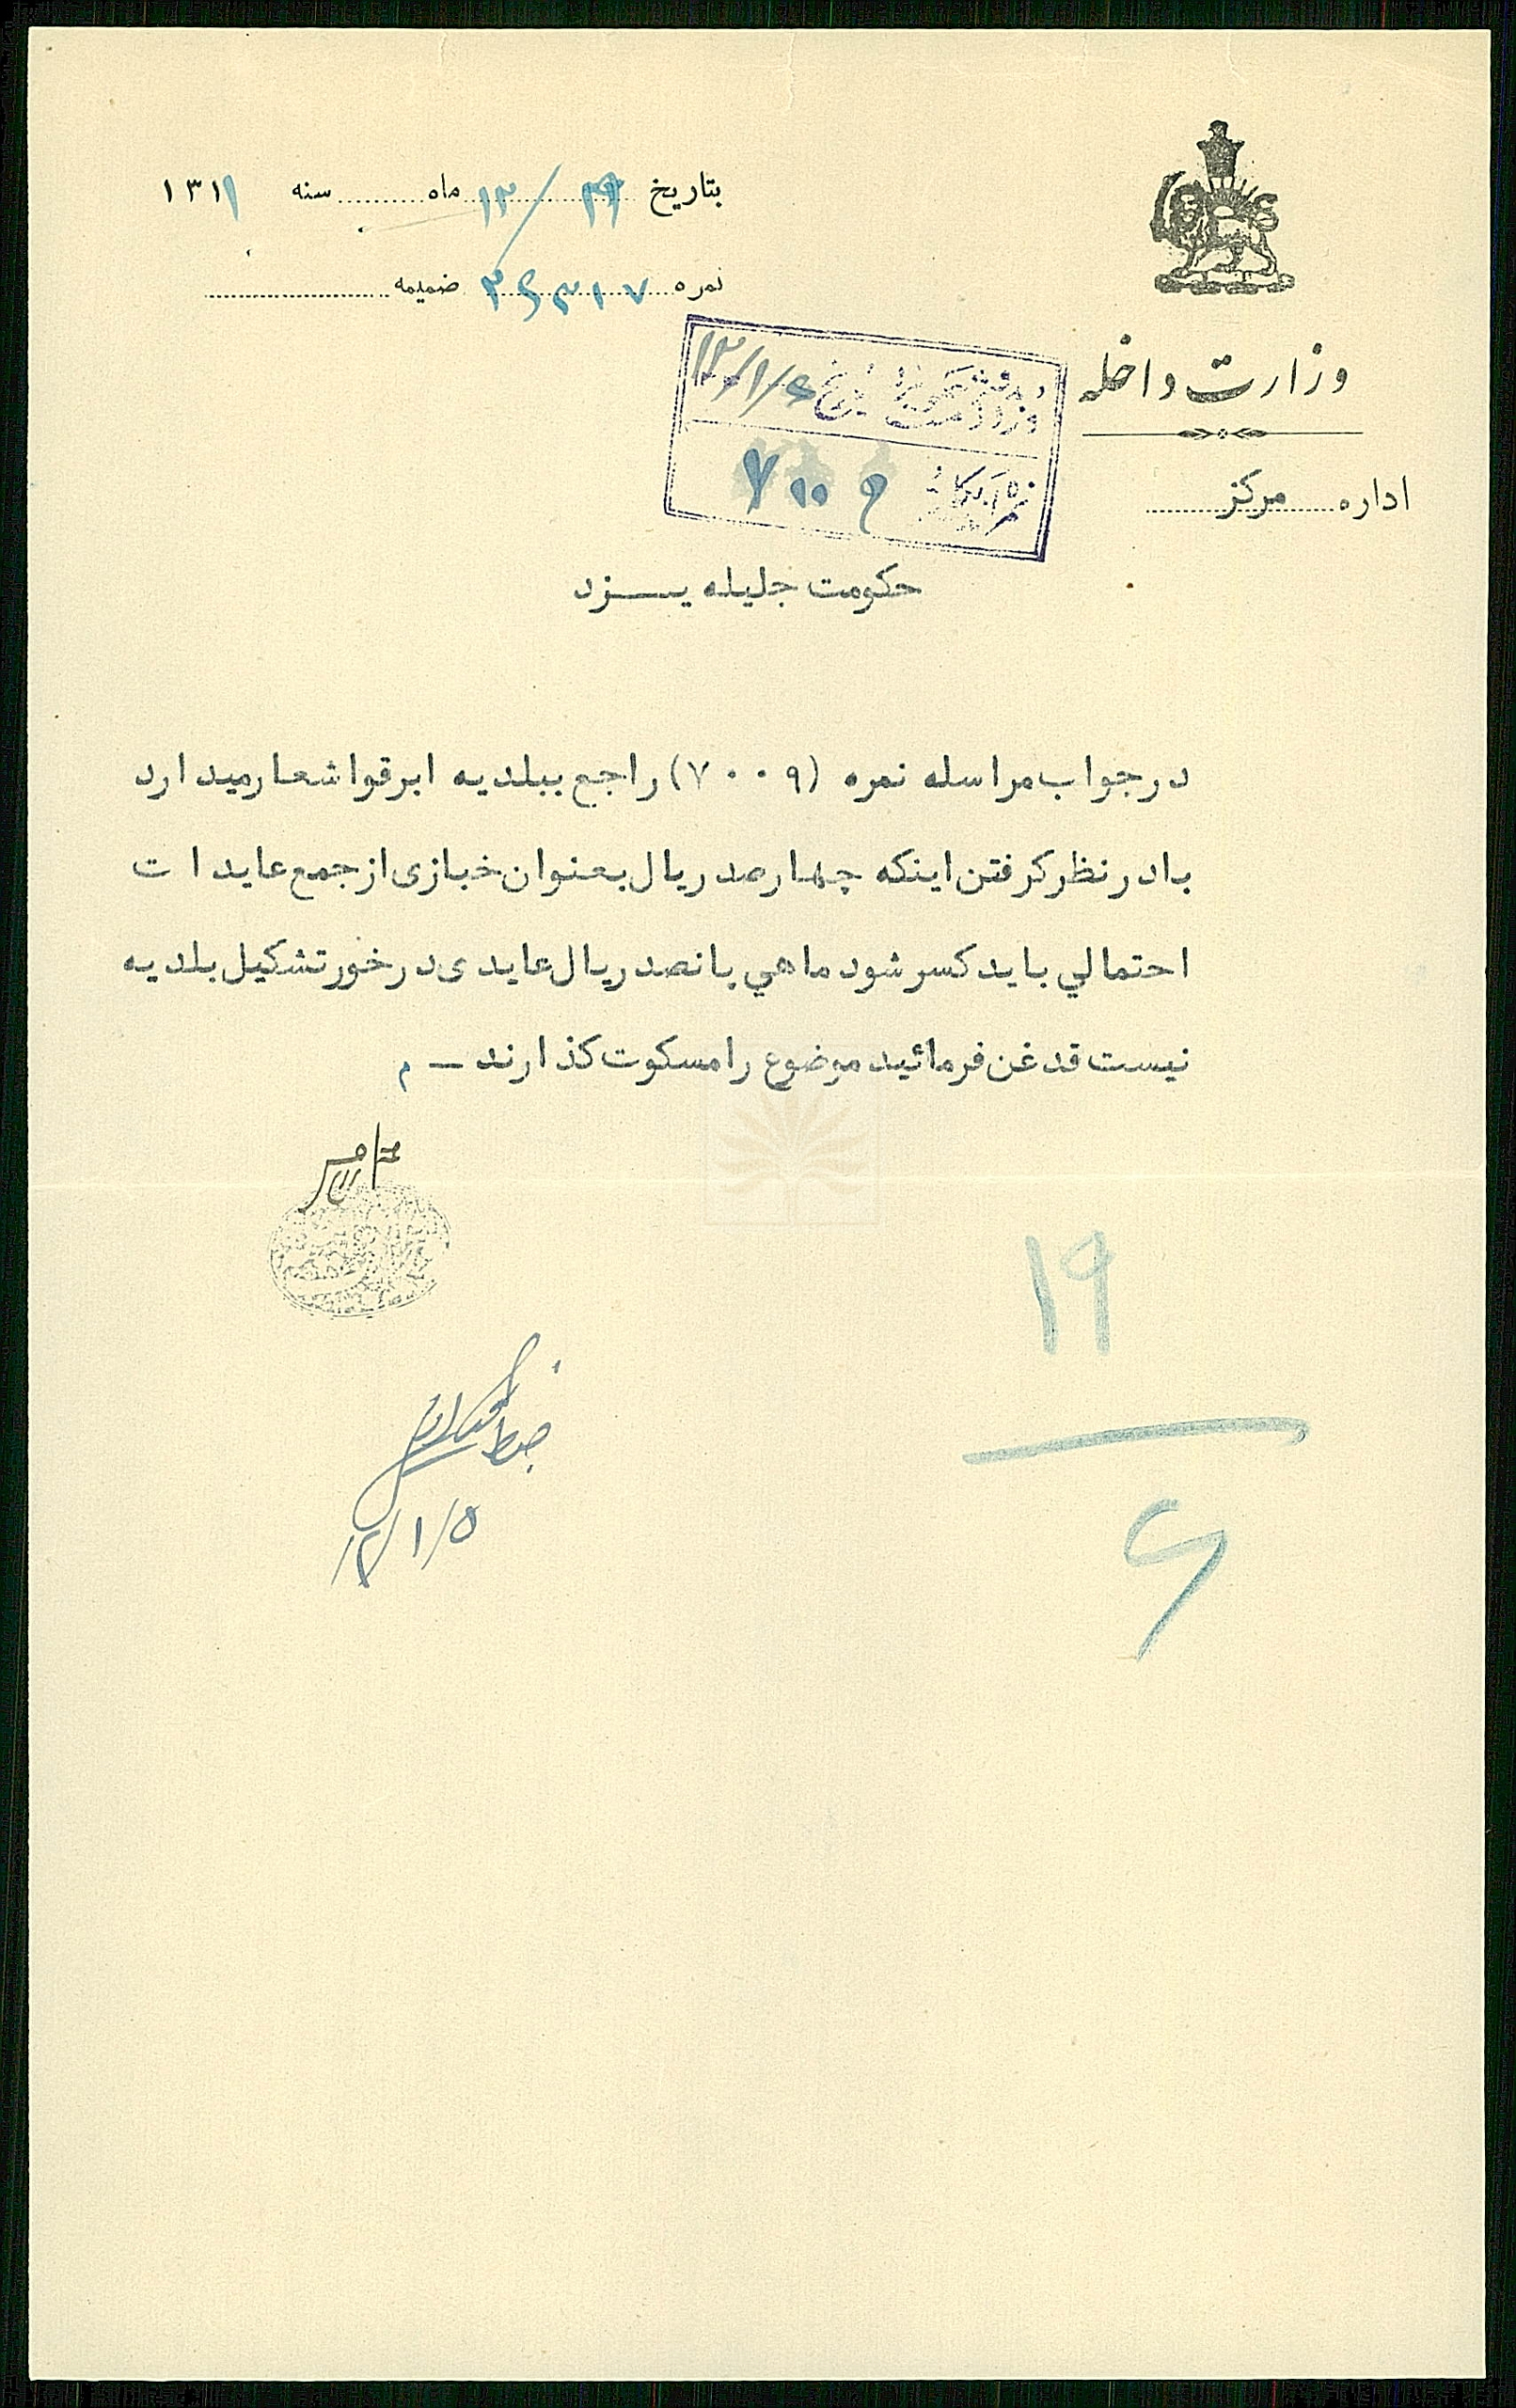 بتاریخ ۱۲/ ماه سنه ۱۳۱۱
نمره ۲۶۳۱۷ ضمیمه
وزارت داخله
اداره مرکز
۱۲/۱/۶
۷۰۰۹
حکومت جلیله یزد
در جواب مراسله نمره (۷۰۰۹) راجع ببلدیه ابرقو اشعار میدارد
با در نظر کرفتن اینکه چهارصد ریال بعنوان خبازی از جمع عایدات
احتمالي باید کسر شود ماهي پانصد ریال عایدی در خور تشکیل بلدیه
نیست قدغن فرمائید موضوع را مسکوت کذارند ـ م
۱۹
۶
ضبط
۱۲/۱/۵